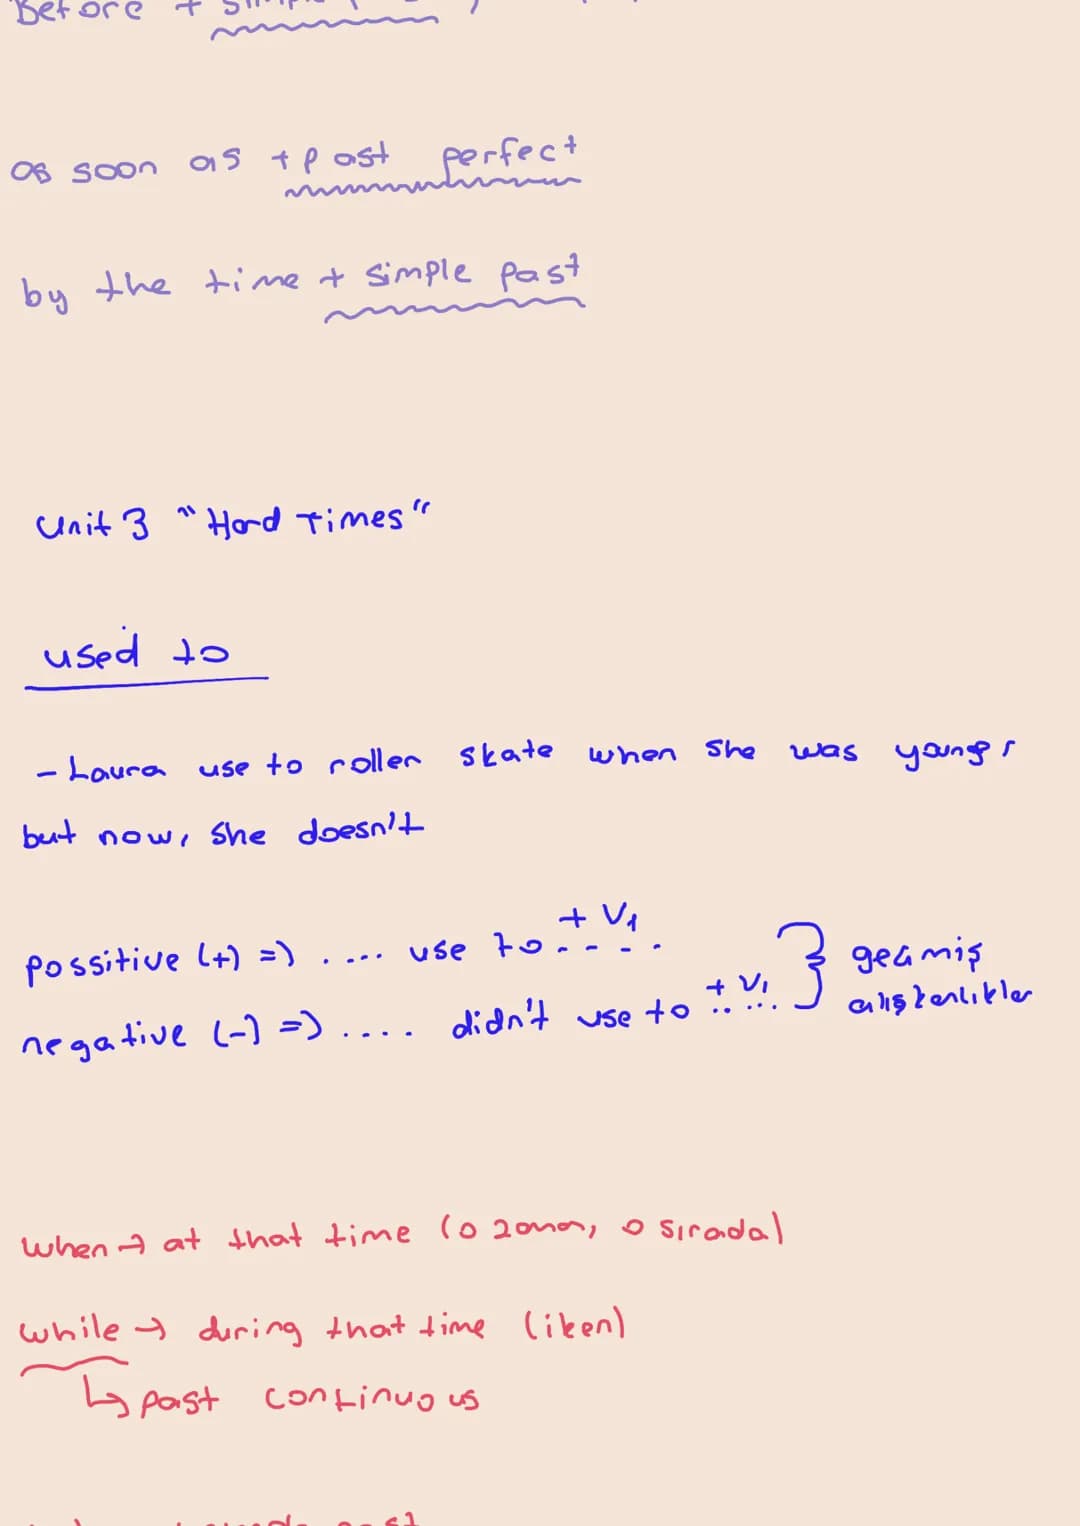 Before + simple
as soon as + past perfect
by the time + simple past
Unit 3 "Hard Times"
used to
- Laura use to roller skate when she was younger
but now, she doesn't
possitive (+) => .... use to + V1 ....
negative (-) => .... didn't use to + V1 .....
geçmiş
alışkanlıklar
when → at that time (o zaman, o sırada)
while → during that time (iken)
↳ past continuous
simple past